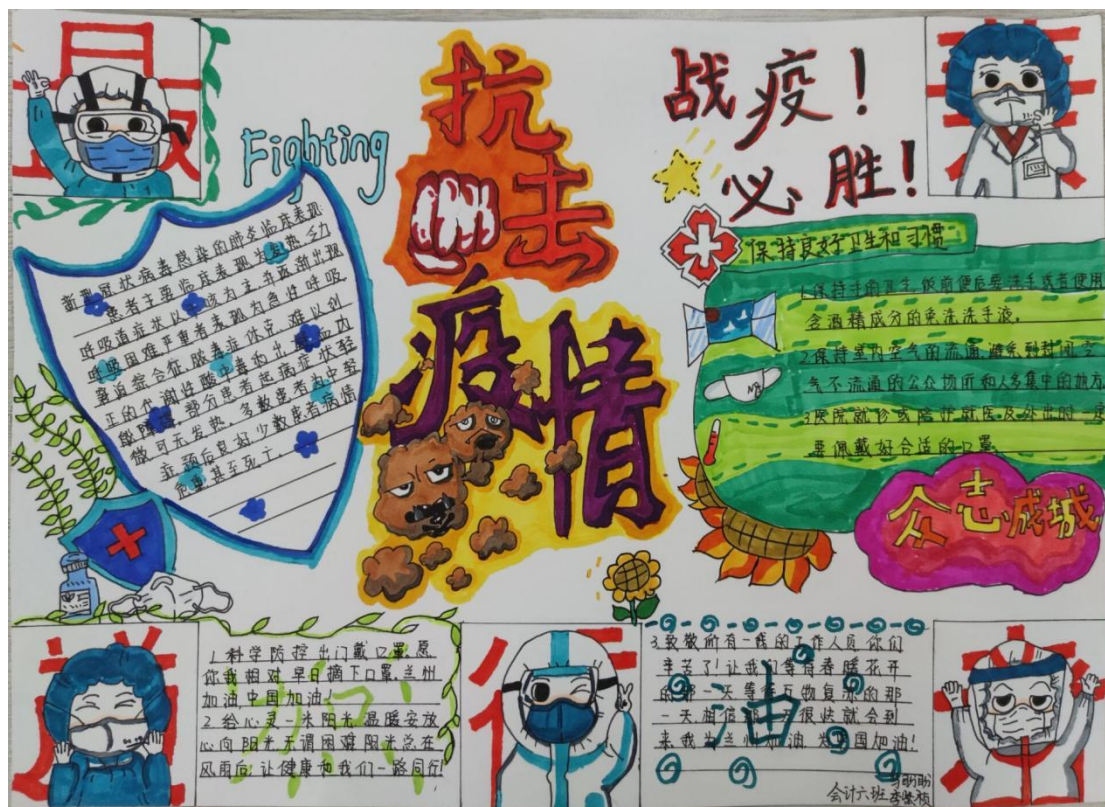 Fighting
抗击
疫情
战疫！
必胜！
新型冠状病毒感染的肺炎临床表现
患者主要临床表现为发热、乏力
呼吸道症状以干咳为主,并逐渐出现
呼吸困难,严重者表现为急性呼吸
窘迫综合征、脓毒症休克、难以纠
正的代谢性酸中毒和出凝血功
能障碍。部分患者起病症状轻
微,可无发热。多数患者为中轻
症,预后良好,少数患者病情
危重,甚至死亡。
保持良好卫生和习惯
1.保持手的卫生,饭前便后要洗手或者使用
含酒精成分的免洗洗手液。
2.保持室内空气的流通,避免到封闭、空
气不流通的公众场所和人多集中的地方
3.医院就诊或陪护就医及外出时一定
要佩戴好合适的口罩。
N95
众志成城
1.科学防控出门戴口罩,愿
你我相对早日摘下口罩,兰州
加油,中国加油!
2.给心灵一米阳光,温暖安放
心向阳光无谓困难阳光总在
风雨后,让健康和我们一路同行!
加
3.致敬所有一线的工作人员,你们
辛苦了!让我们等有春暖花开
的那一天等待万物复苏的那
一天相信那一天很快就会到
来我为兰州加油,为中国加油!
油
会计六班